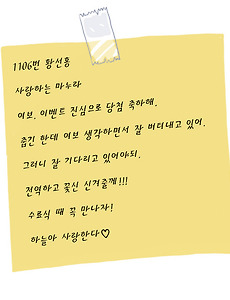 1106번 황선홍
사랑하는 마누라
여보, 이벤트 진심으로 당첨 축하해.
춥긴 한데 여보 생각하면서 잘 버텨내고 있어.
그러니 잘 기다리고 있어야돼.
전역하고 꽃신 신겨줄께!!!
수료식 때 꼭 만나자!
하늘아 사랑한다♡